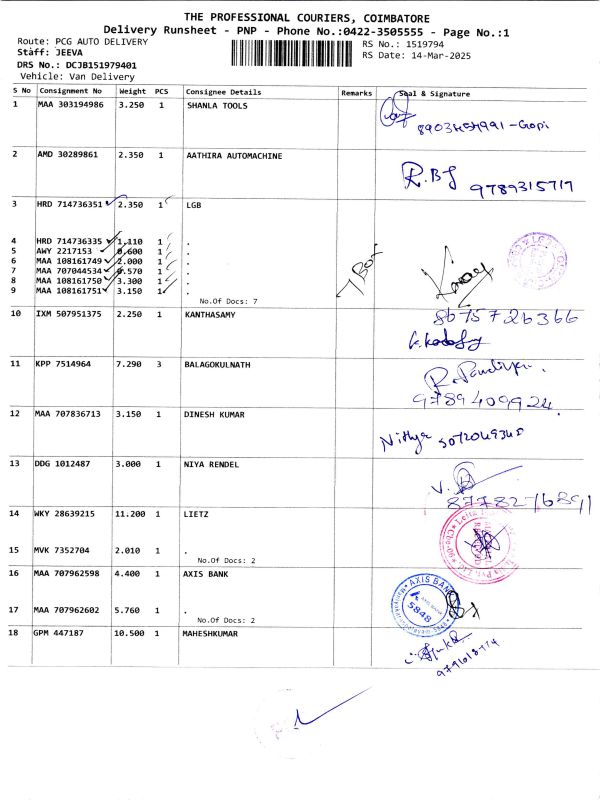 THE PROFESSIONAL COURIERS, COIMBATORE
Delivery Runsheet - PNP - Phone No.:0422-3505555 - Page No.:1
Route: PCG AUTO DELIVERY
RS No.: 1519794
Staff: JEEVA
RS Date: 14-Mar-2025
DRS No.: DCJB151979401
Vehicle: Van Delivery
S No Consignment No Weight PCS Consignee Details Remarks Seal & Signature
1 MAA 303194986 3.250 1 SHANLA TOOLS
-Gopi
2 AMD 30289861 2.350 1 AATHIRA AUTOMACHINE
9789315717
3 HRD 714736351 2.350 1 LGB
4 HRD 714736335 1.110 1 .
5 AWY 2217153 0.600 1 .
6 MAA 108161749 2.000 1 .
7 MAA 707044534 0.570 1 .
8 MAA 108161750 3.300 1 .
9 MAA 108161751 3.150 1 .
No.Of Docs: 7
10 IXM 507951375 2.250 1 KANTHASAMY
8675726366
11 KPP 7514964 7.290 3 BALAGOKULNATH
R. Pandiyan.
9789409924
12 MAA 707836713 3.150 1 DINESH KUMAR
Nithya
13 DDG 1012487 3.000 1 NIYA RENDEL
14 WKY 28639215 11.200 1 LIETZ
15 MVK 7352704 2.010 1 .
No.Of Docs: 2
16 MAA 707962598 4.400 1 AXIS BANK
AXIS BANK
5848
17 MAA 707962602 5.760 1 .
No.Of Docs: 2
18 GPM 447187 10.500 1 MAHESHKUMAR